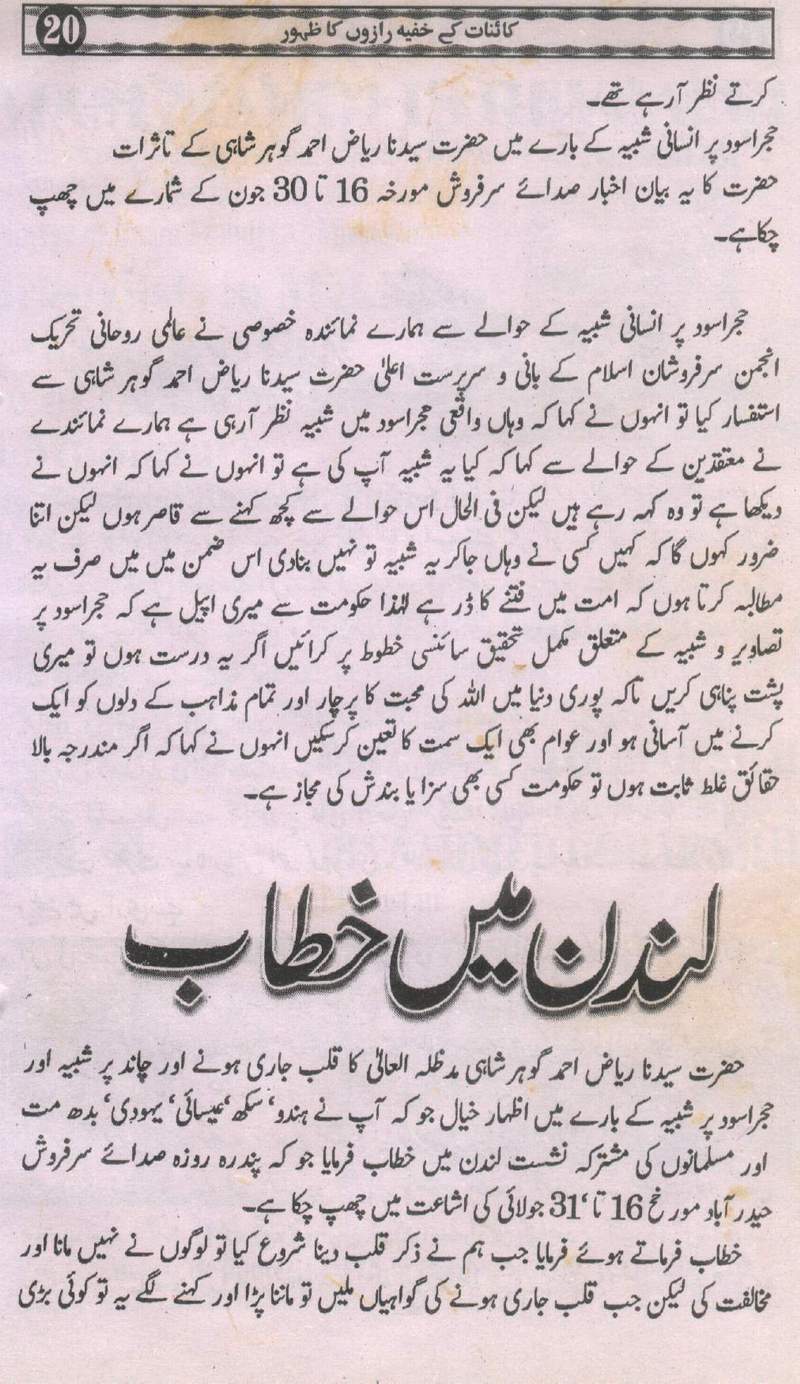 20
کائنات کے خفیہ رازوں کا ظہور
کرتے نظر آرہے تھے۔
حجراسود پر انسانی شبیہ کے بارے میں حضرت سیدنا ریاض احمد گوہر شاہی کے تاثرات
حضرت کا یہ بیان اخبار صدائے سرفروش مورخہ 16 تا 30 جون کے شمارے میں چھپ
چکا ہے۔
حجراسود پر انسانی شبیہ کے حوالے سے ہمارے نمائندہ خصوصی نے عالمی روحانی تحریک
انجمن سرفروشان اسلام کے بانی و سرپرست اعلیٰ حضرت سیدنا ریاض احمد گوہر شاہی سے
استفسار کیا تو انہوں نے کہا کہ وہاں واقعی حجراسود میں شبیہ نظر آرہی ہے ہمارے نمائندے
نے معتقدین کے حوالے سے کہا کہ کیا یہ شبیہ آپ کی ہے تو انہوں نے کہا کہ انہوں نے
دیکھا ہے تو وہ کہہ رہے ہیں لیکن فی الحال اس حوالے سے کچھ کہنے سے قاصر ہوں لیکن اتنا
ضرور کہوں گا کہ کہیں کسی نے وہاں جاکر یہ شبیہ تو نہیں بنادی اس ضمن میں میں صرف یہ
مطالبہ کرتا ہوں کہ امت میں فتنے کا ڈر ہے لہٰذا حکومت سے میری اپیل ہے کہ حجراسود پر
تصاویر و شبیہ کے متعلق مکمل تحقیق سائنسی خطوط پر کرائیں اگر یہ درست ہوں تو میری
پشت پناہی کریں تاکہ پوری دنیا میں اللہ کی محبت کا پرچار اور تمام مذاہب کے دلوں کو ایک
کرنے میں آسانی ہو اور عوام بھی ایک سمت کا تعین کرسکیں انہوں نے کہا کہ اگر مندرجہ بالا
حقائق غلط ثابت ہوں تو حکومت کسی بھی سزا یا بندش کی مجاز ہے۔
لندن میں خطاب
حضرت سیدنا ریاض احمد گوہر شاہی مدظلہ العالیٰ کا قلب جاری ہونے اور چاند پر شبیہ اور
حجراسود پر شبیہ کے بارے میں اظہار خیال جو کہ آپ نے ہندو‘ سکھ‘ عیسائی‘ یہودی‘ بدھ مت
اور مسلمانوں کی مشترکہ نشست لندن میں خطاب فرمایا جو کہ پندرہ روزہ صدائے سرفروش
حیدر آباد مورخہ 16 تا ‘31 جولائی کی اشاعت میں چھپ چکا ہے۔
خطاب فرماتے ہوئے فرمایا جب ہم نے ذکر قلب دینا شروع کیا تو لوگوں نے نہیں مانا اور
مخالفت کی لیکن جب قلب جاری ہونے کی گواہیاں ملیں تو ماننا پڑا اور کہنے لگے یہ تو کوئی بڑی